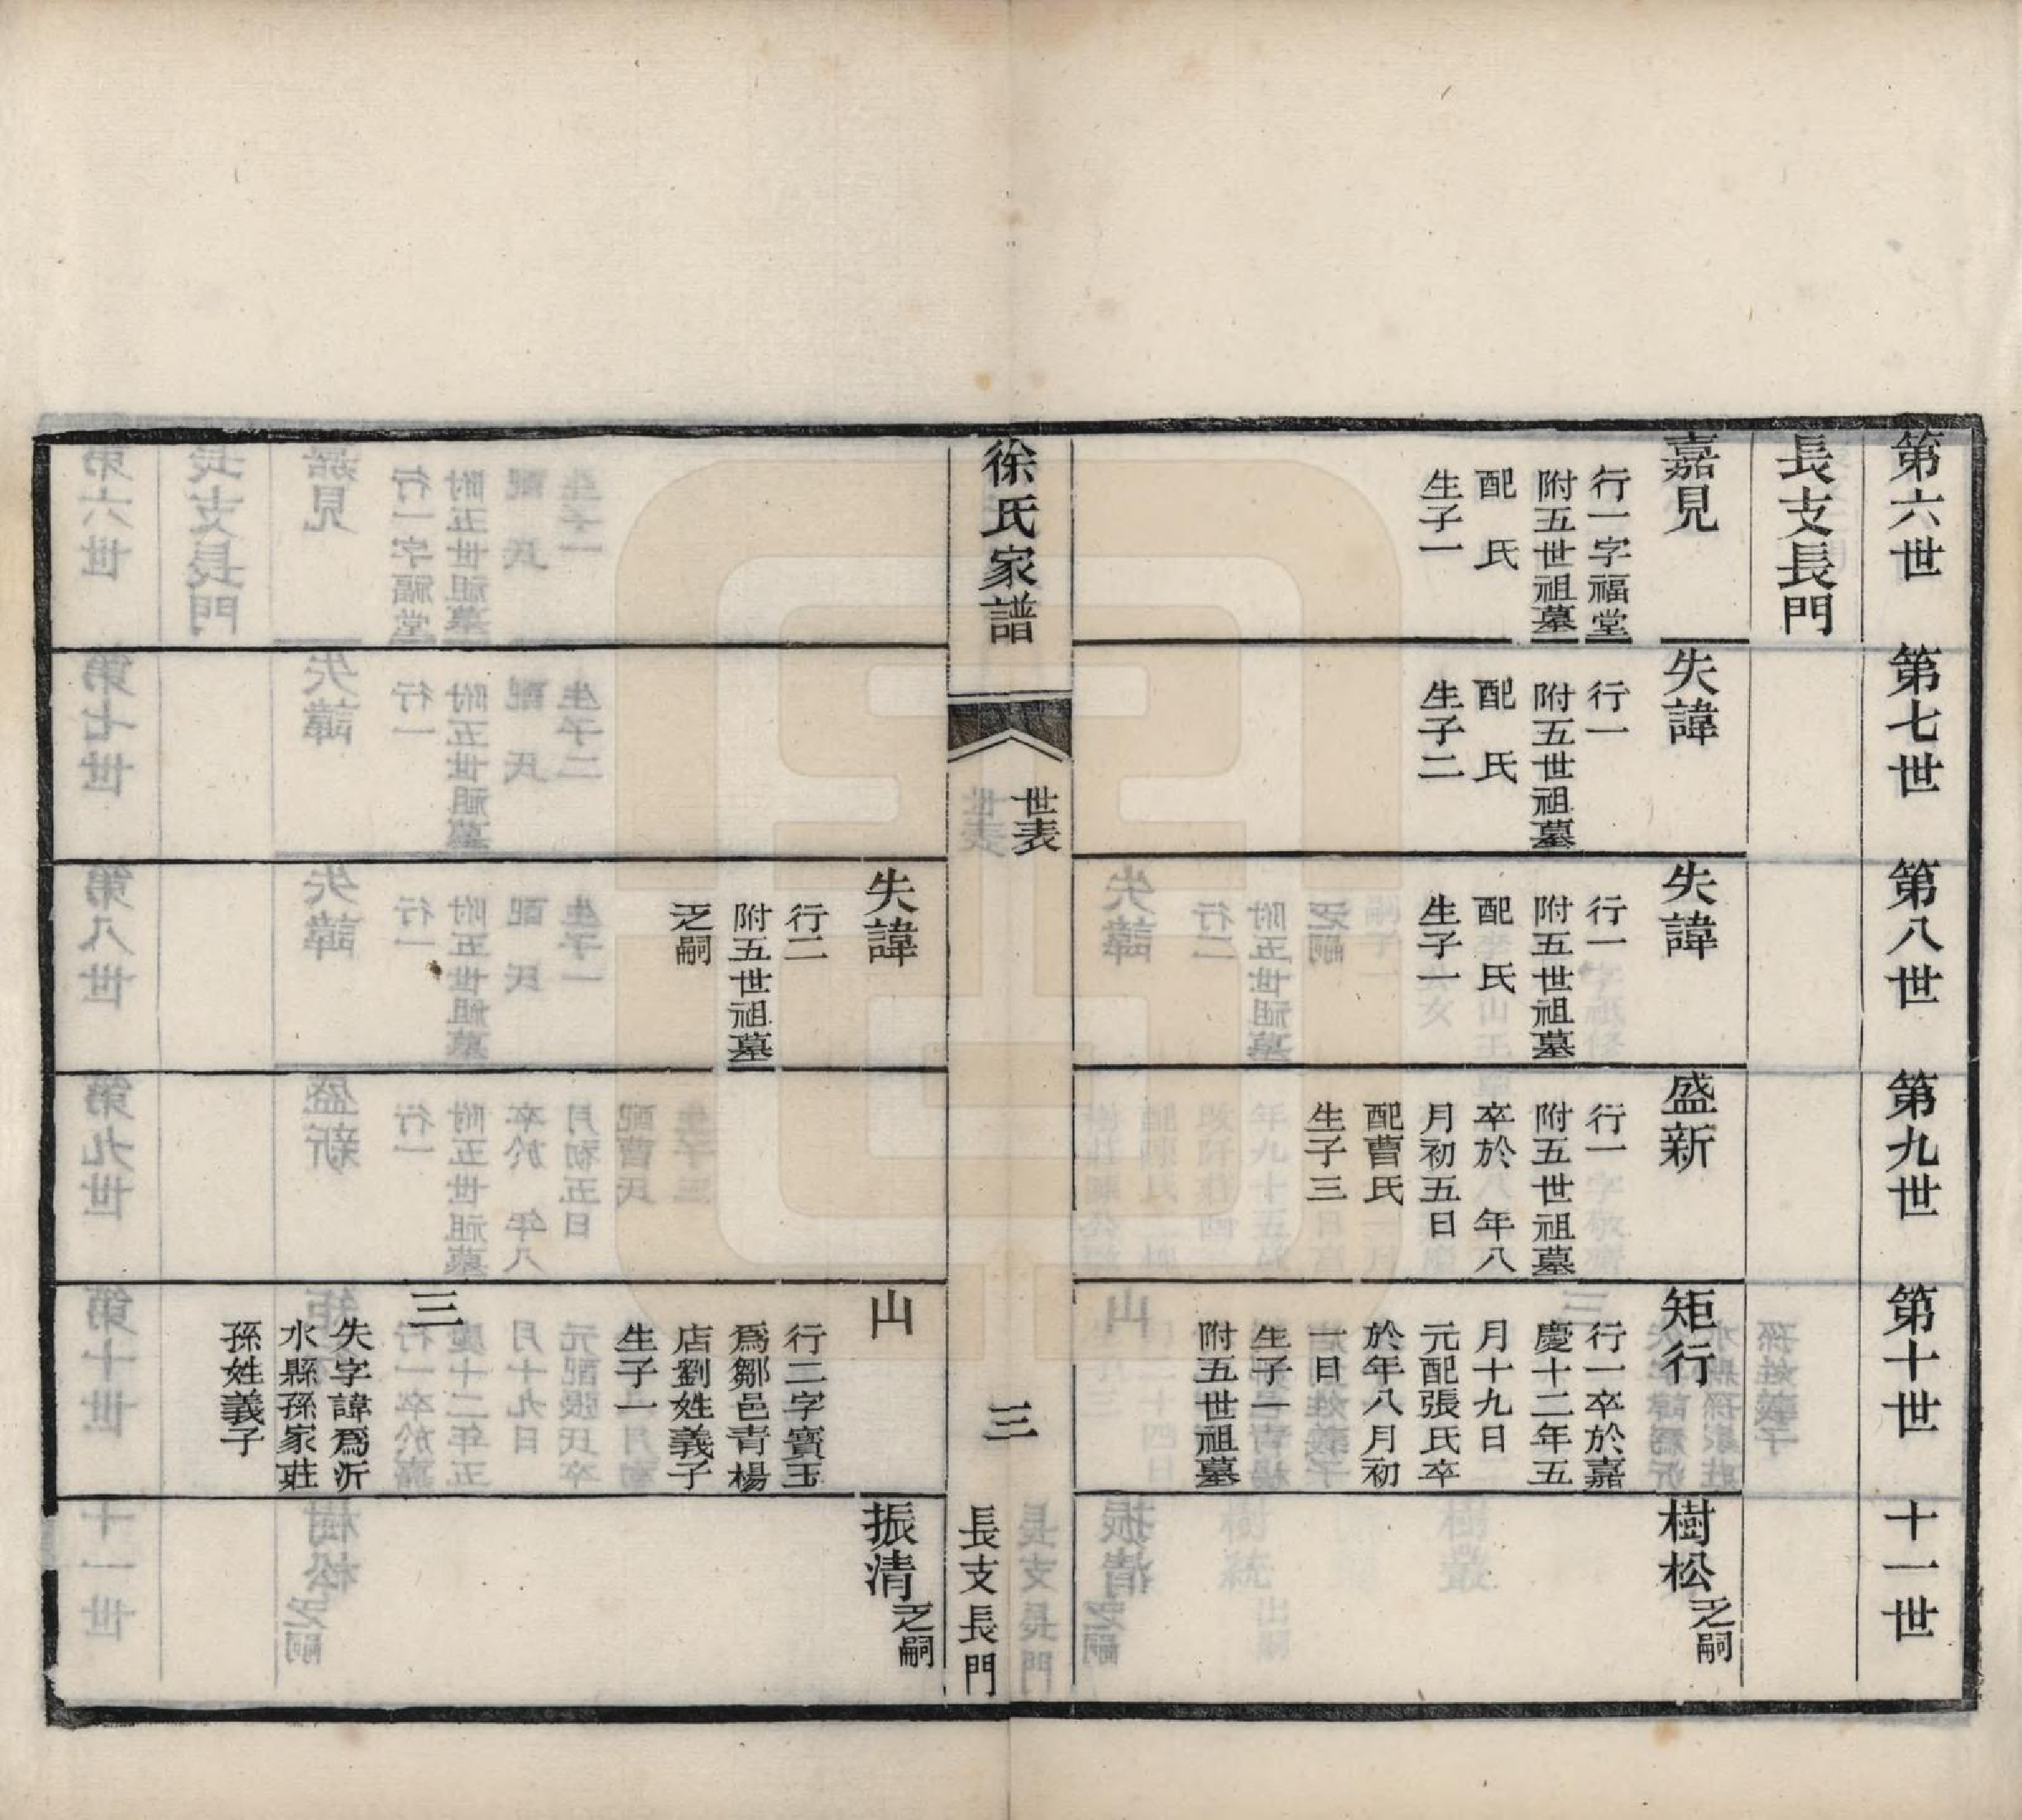 第六世
第七世
第八世
第九世
第十世
十一世
長支長門
嘉見
行一字福堂
附五世祖墓
配　氏
生子一
失諱
行一
附五世祖墓
配　氏
生子二
失諱
行一
附五世祖墓
配　氏
生子一
盛新
行一
附五世祖墓
卒於　年八
月初五日
配曹氏
生子三
矩行
行一卒於嘉
慶十二年五
月十九日
元配張氏卒
於年八月初
一日
生子一
附五世祖墓
樹松
乏嗣
徐氏家譜
世表
三
長支長門
失諱
行二
附五世祖墓
乏嗣
山
行二字寶玉
爲鄒邑青楊
店劉姓義子
生子一
振清
乏嗣
三
失字諱爲沂
水縣孫家莊
孫姓義子